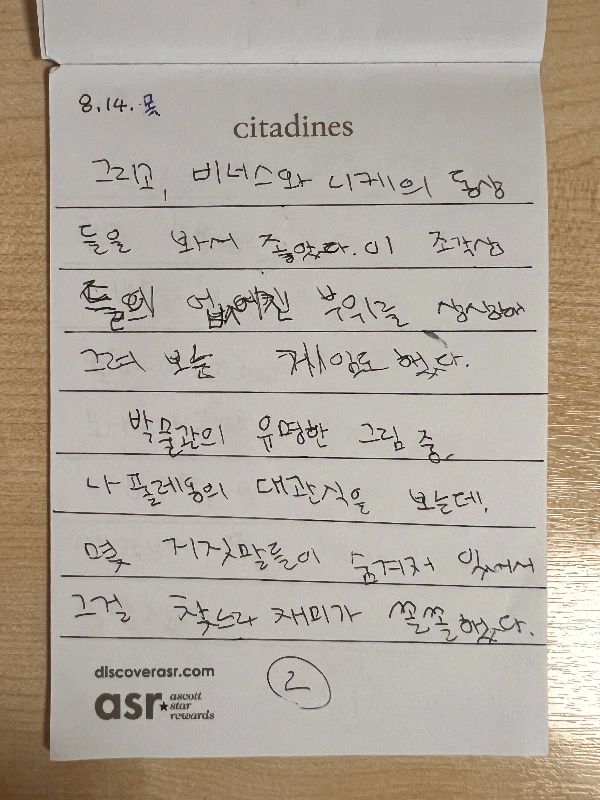 8.14.목
citadines
그리고, 비너스와 니케의 동상
들을 봐서 좋았다. 이 조각상
들의 없어진 부위를 상상해
그려 보는 게임도 했다.
박물관의 유명한 그림 중,
나폴레옹의 대관식을 보는데,
몇 거짓말들이 숨겨져 있어서
그걸 찾느라 재미가 쏠쏠했다.
discoverasr.com
asr ascott
star
rewards
2